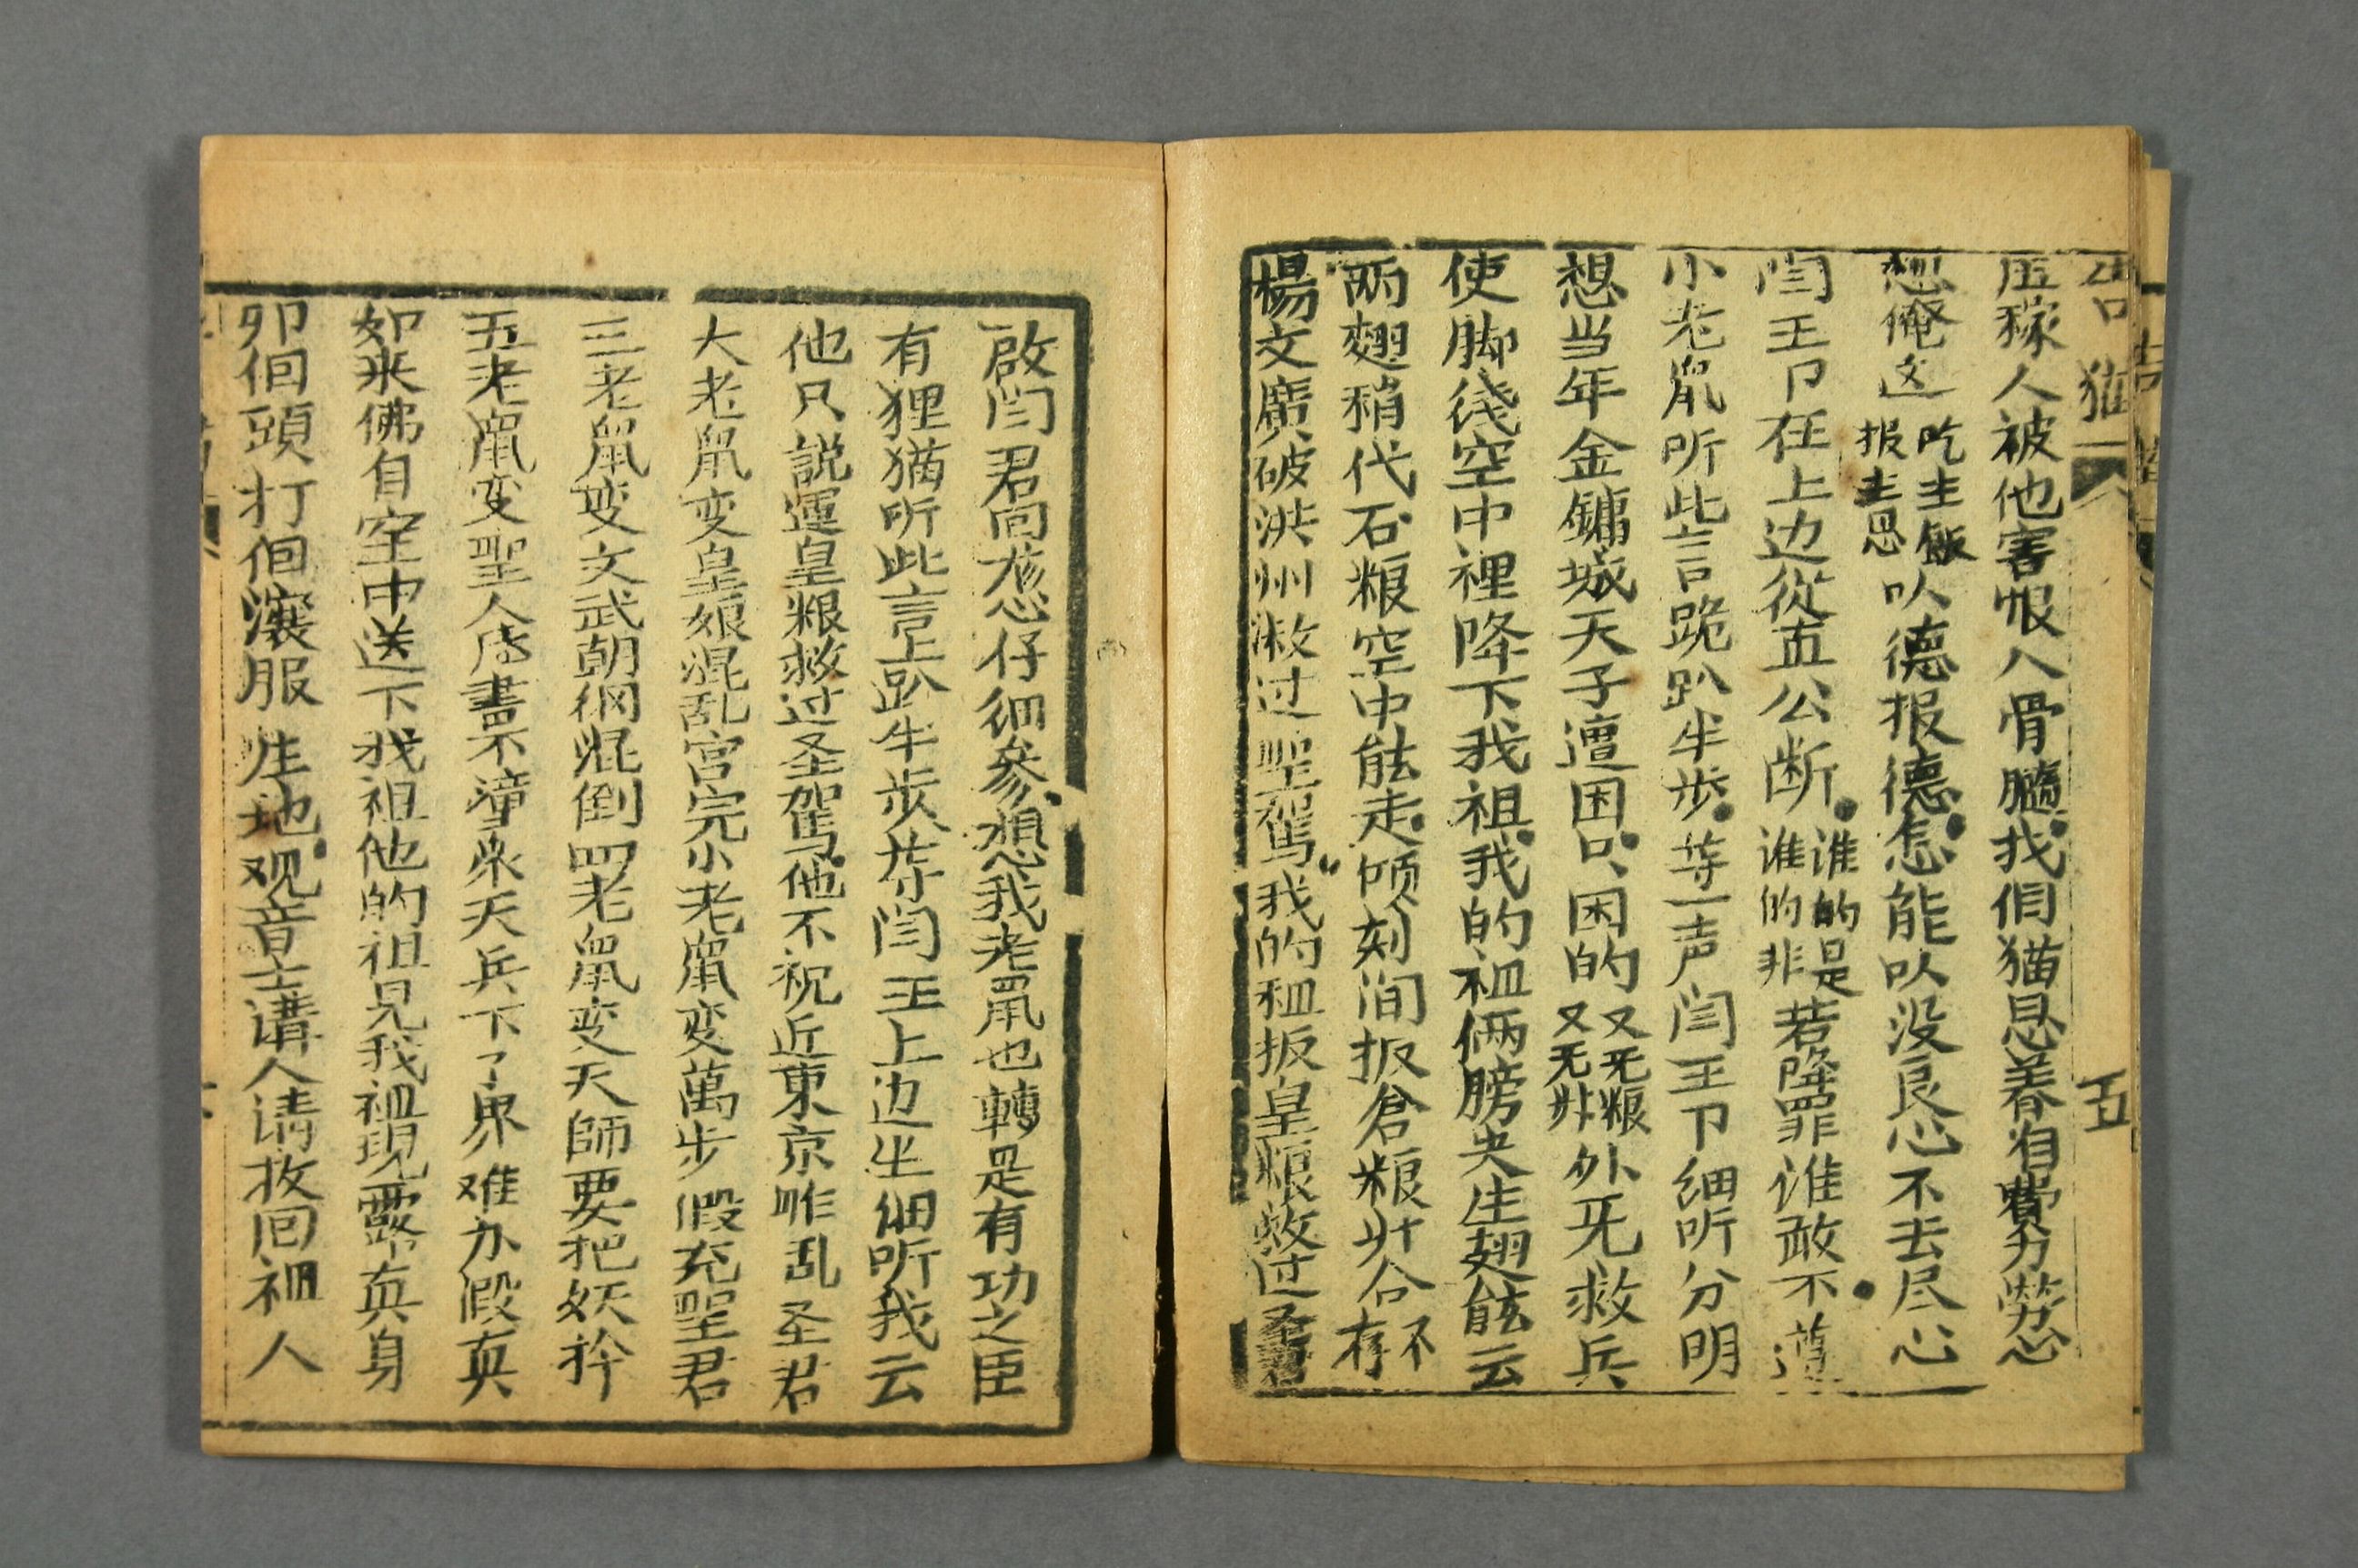 告猫 五
庄稼人被他害恨入骨髓我们猫恩養自費力勞心
想俺这吃主飯报主恩以德报德怎能以没良心不去尽心
闫王卩在上边從直公断谁的是谁的非若降罪谁敢不遵
小老鼠听此言跪趴半步等一声闫王卩细听分明
想当年金鏞城天子遭困只困的又无粮又无草外无救兵
使脚後空中裡降下我祖我的祖俩膀夹生翅能云
两翅稍代石粮空中能走顷刻间扳倉粮升合不存
楊文廣破洪州救过聖駕我的祖扳皇粮救过圣君
啟闫君回龙心仔细參想我老鼠也轉是有功之臣
有狸猫听此言上趴半步等闫王上边坐细听我云
他只説運皇粮救过圣驾他不祝近東京咋乱圣君
大老鼠变皇娘混乱宫完小老鼠变萬步假充聖君
三老鼠变文武朝纲混倒四老鼠变天師要把妖拎
五老鼠变聖人唐書不潼眾天兵下了界难办假真
如来佛自空中送下我祖他的祖見我祖現露真身
卯個頭打個滾服在地观音士请人请放回祖人